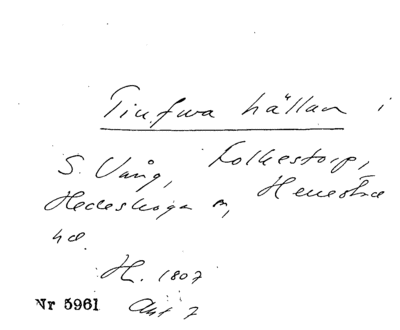 Tiufwa hällan i
S. Vång, Folkestorp,
Hedeskoga m, Herrestad
hd.
H. 1807
Akt 7
Nr 5961